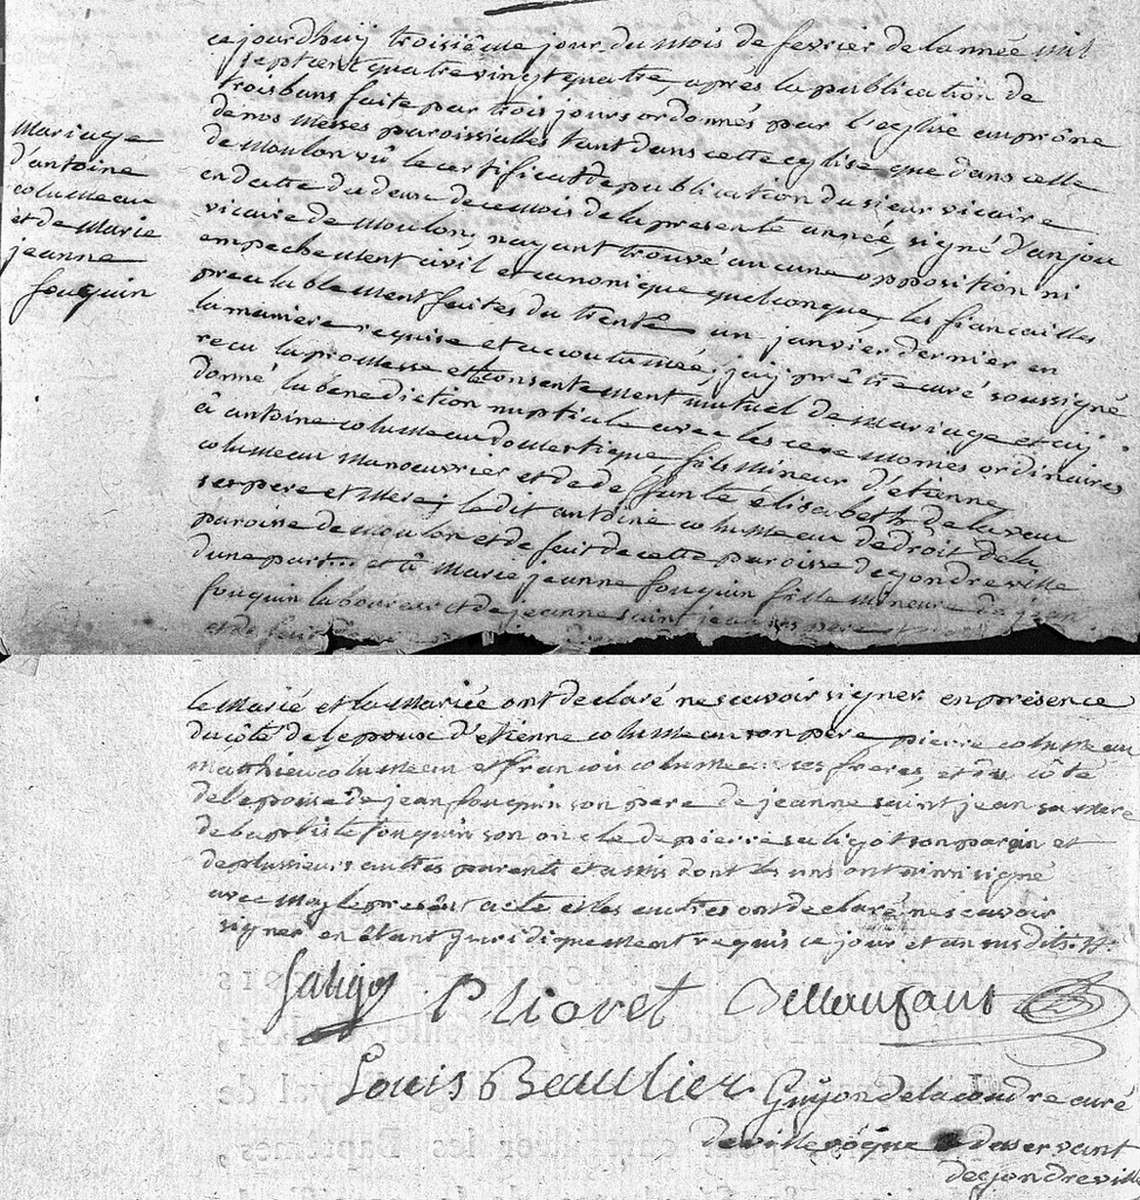 Mariage
d'antoine
columeau
et de Marie
jeanne
fouquin
cejourdhuij troisiême jour du mois de fevrier de lannée mil
septcent quatrevingt quatre, après la publication de
trois bans faite par trois jours ordonnés par l'eglise au prône
de nos Messes paroissialles tant dans cette eglise que dans celle
de Moulon vû le certificat de publication du sieur vicaire
en datte du deux de ce mois de la presente année, signé d'anjou
vicaire de Moulon, nayant trouvé aucune opposition ni
empechement civil et canonique quelconque, les fiancailles
prealablement faites du trente un janvier dernier en
la maniere requise et accoutumée, jaij prêtre curé soussigné
recu la promesse et consentement mutuel de Mariage et aij
donné la benediction nuptiale avec les ceremonies ordinaires
à antoine columeau domestique, fils mineur d'étienne
columeau manoeuvrier et de deffunte élisabeth delaveau
ses pere et mere; le dit antoine columeau de droit de la
paroisse de Moulon et de fait de cette paroisse degondreville
dune part... et à Marie jeanne fouquin fille mineure de jean
fouquin laboureur et de jeanne saint jean ses pere et
et de fait
le Marié et la Mariée ont declaré ne scavoir signer en présence
du côté de lepoux d'etienne columeau son père pierre columeau
matthieu columeau et francois columeau ses freres, et du côté
de lepouse de jean fouquin son père de jeanne saint jean sa mere
de baptiste fouquin son oncle de pierre saligot son parain et
de plussieurs autres parents et amis dont les uns ont signé
avec moy le présent acte et les autres ont declaré ne scavoir
signer en êtant juridiquement requis ce jour et an susdits.
Saligot P liovet Dellaufant
Louis Beaulier Guyon delacoudre curé
de villevoque deservant
degondreville